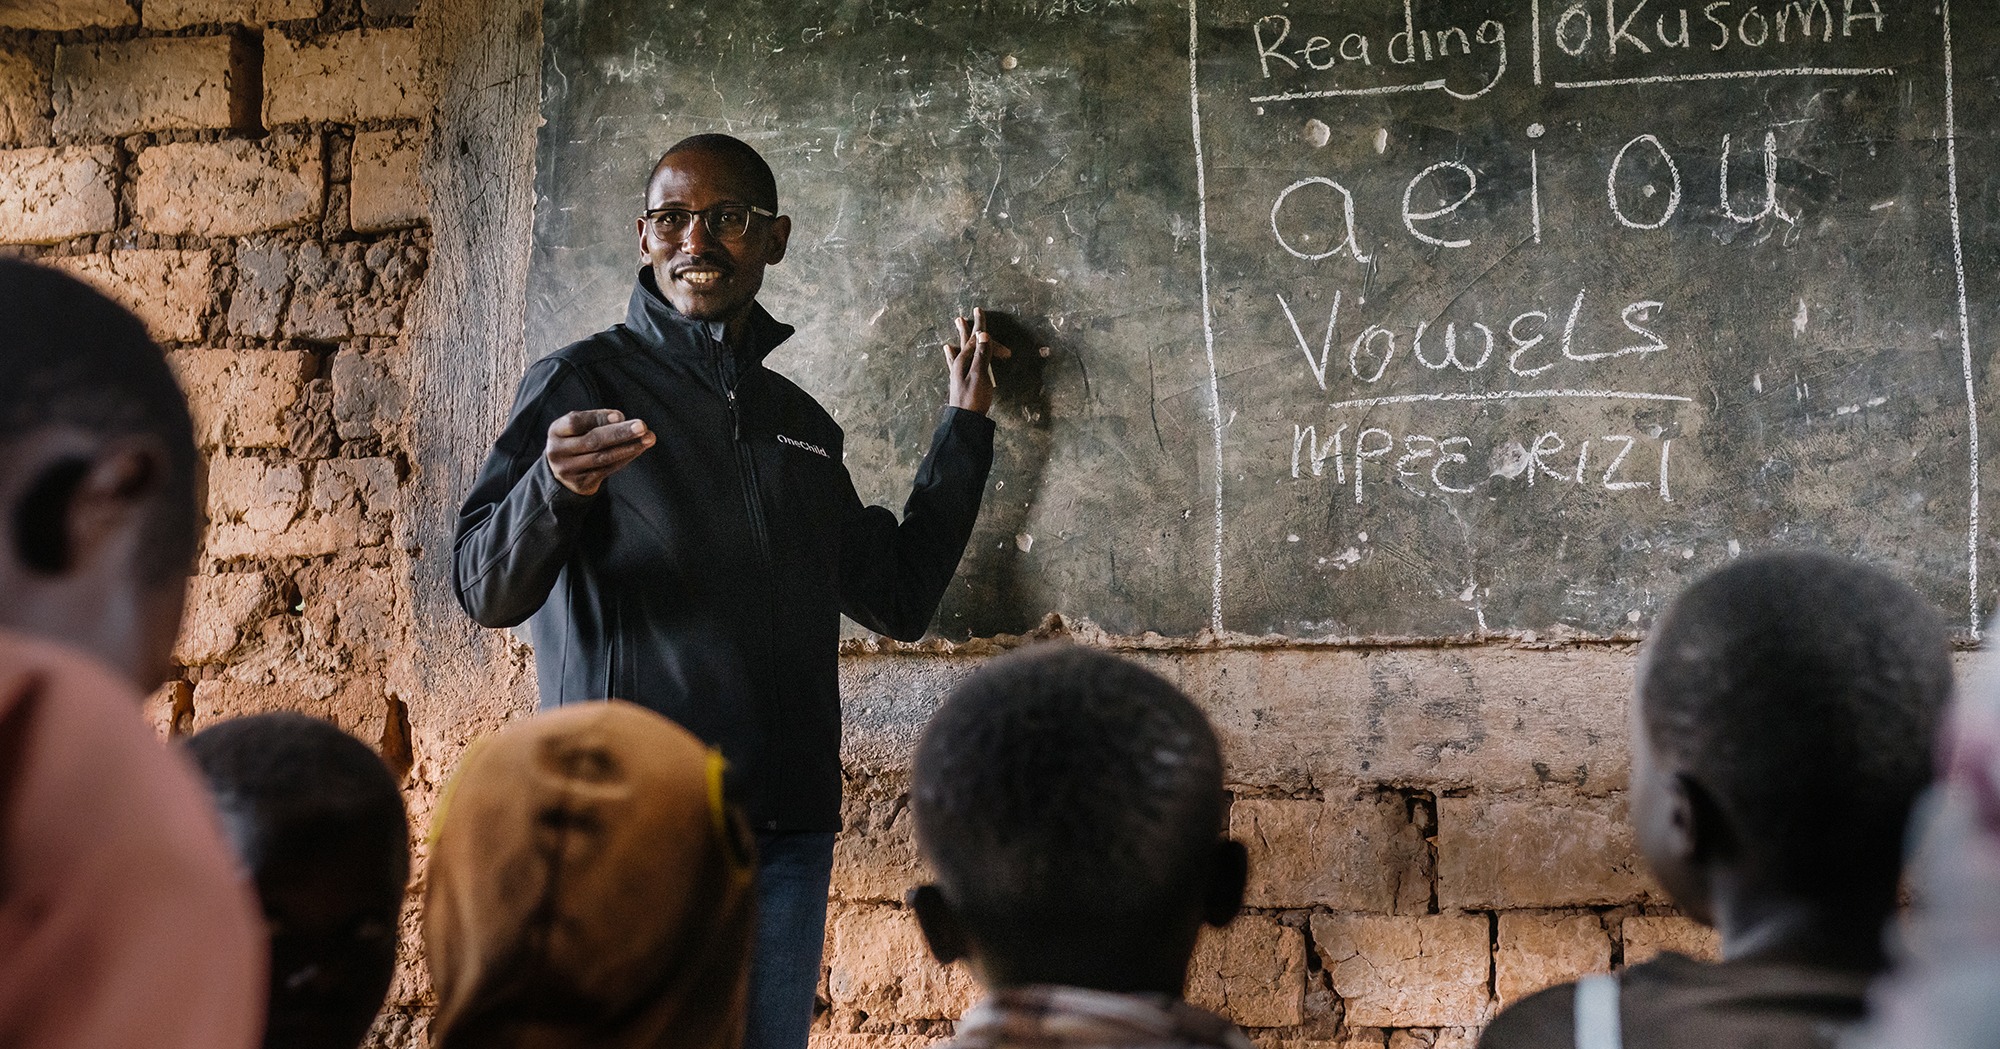 Reading | OKUSOMA
a e i o u
VOWELS
MPEEERIZI
OneChild